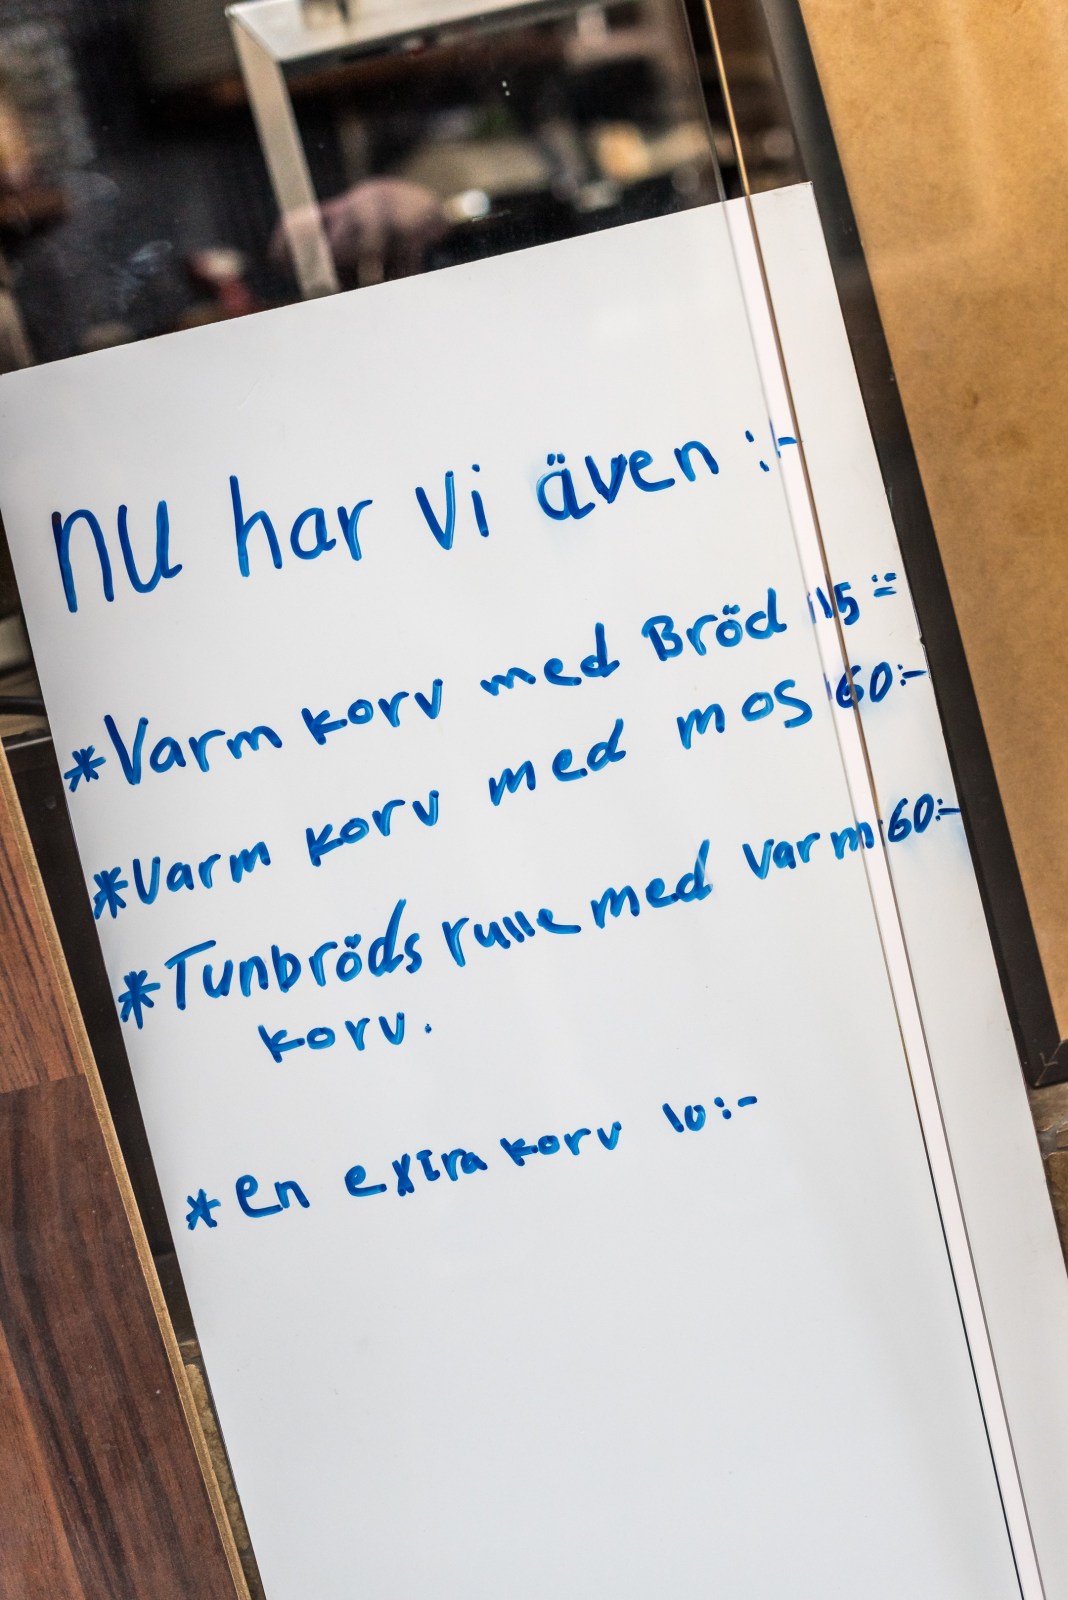 nu har vi även :-
*Varm korv med Bröd 15:-
*Varm korv med mos 60:-
*Tunbröds rulle med varm 60:-
korv.
*en extra korv 10:-